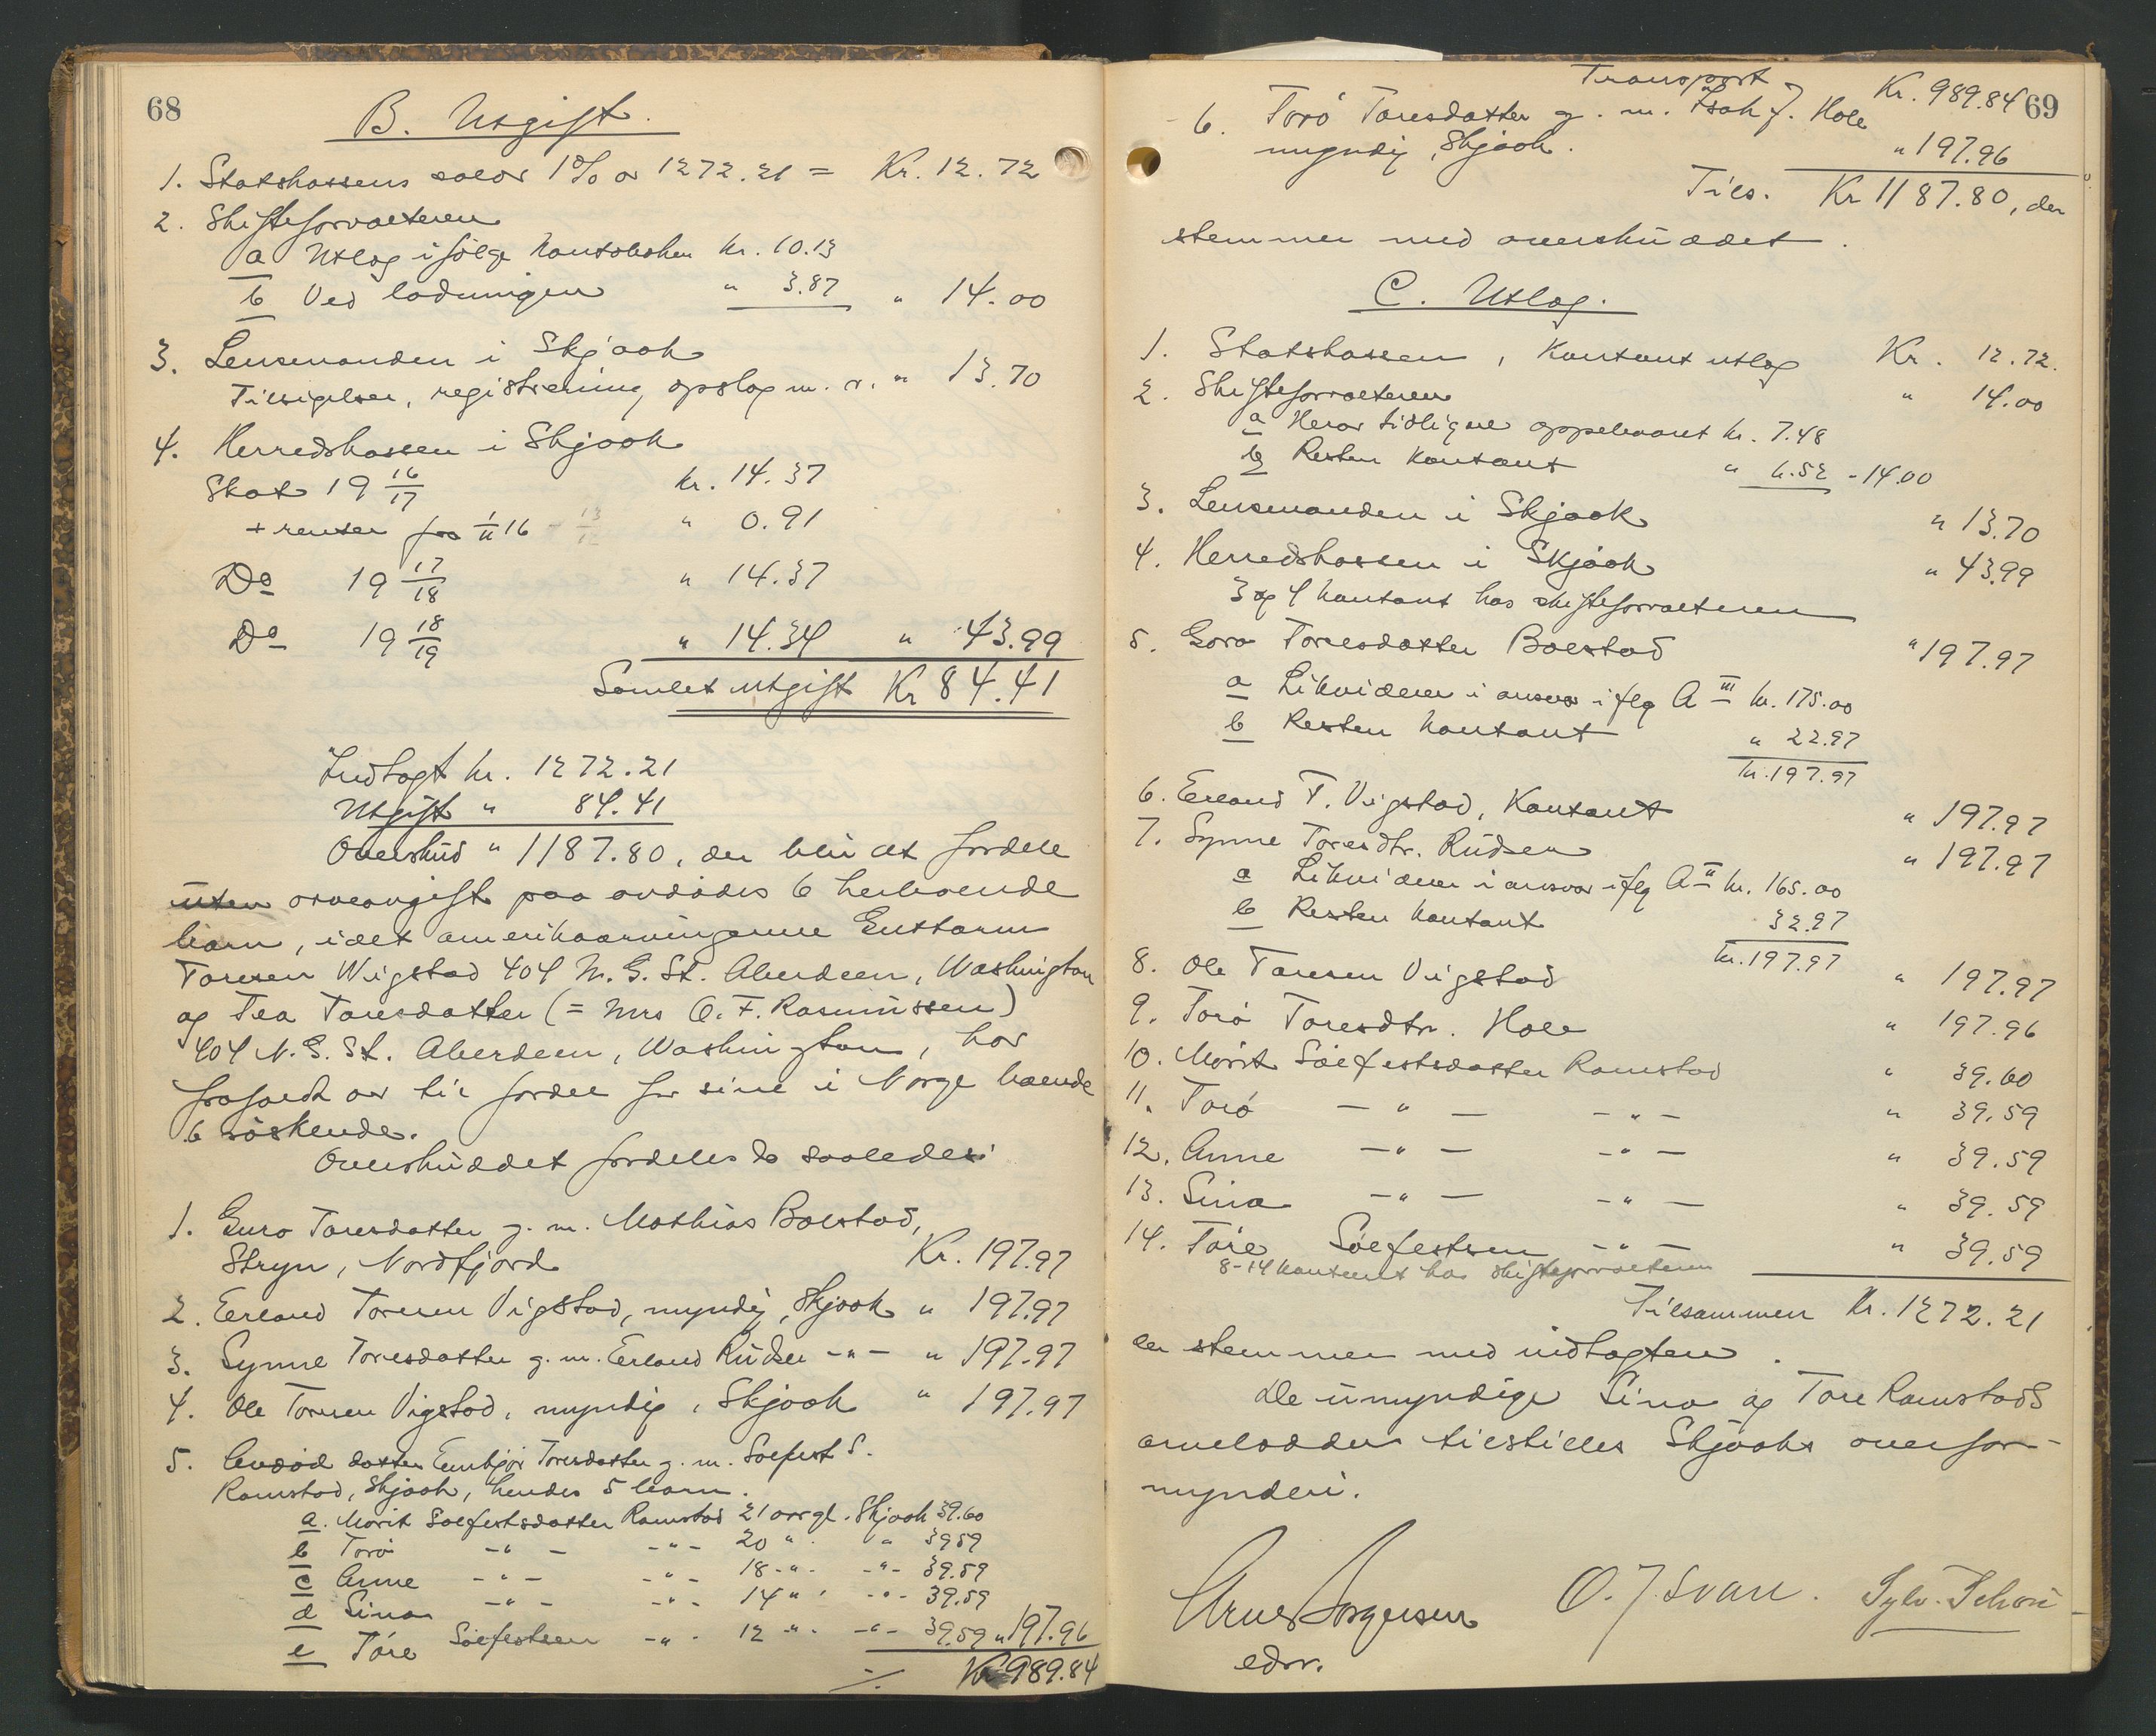 68
B. Utgift.
1. Statskassens salær 1% av 1272.21 = Kr. 12.72
2. Skifteforvalteren
a Utlæg ifølge kontoboken kr. 10.13
b Ved lodningen " 3.87 " 14.00
3. Lensmanden i Skjaak
Tilsigelser, registrering, opslag m. v. " 13.70
4. Herredskassen i Skjaak
Skat 19 16/17 kr. 14.37
+ renter fra 1/11 16 " 0.91
Do 19 17/18 " 14.37
Do 19 18/19 " 14.34 " 43.99
Samlet utgift Kr 84.41
Indtægt kr. 1272.21
Utgift " 84.41
Overskud " 1187.80, der blir at fordele
uten arveavgift paa avdødes 6 herboende
barn, idet amerikaarvingerne Guttorm
Toresen Wigstad 404 N. G. St. Aberdeen, Washington
og Tea Toresdatter (= Mrs O. F. Rasmussen)
404 N. G. St. Aberdeen, Washington, har
frafaldt arv til fordel for sine i Norge boende
6 søskende.
Overskuddet fordeles da saaledes:
1. Guro Toresdatter g. m. Mathias Bolstad,
Stryn, Nordfjord Kr. 197.97
2. Erland Toresen Vigstad, myndig, Skjaak " 197.97
3. Synne Toresdatter g. m. Erland Rudsen -"- " 197.97
4. Ole Toresen Vigstad, myndig, Skjaak " 197.97
5. Avdød datter Eimbjør Toresdatter g. m. Solfest S.
Ramstad, Skjaak, hendes 5 barn.
a. Marit Solfestsdatter Ramstad 21 aar gl. Skjaak 39.60
b Torø -"- -"- 20 " " 39.59
c Anne -"- -"- 18 -"- -"- 39.59
d Sina -"- -"- 14 " -"- 39.59
e Tore Solfestsen -"- 12 " -"- 39.59 " 197.96
./. Kr 989.84
69
Transport Kr. 989.84
6. Torø Toresdatter g. m. Isak J. Hole
myndig, Skjaak. " 197.96
Tils. Kr 1187.80, der
stemmer med overskuddet.
C. Utlæg.
1. Statskassen, Kontant utlæg Kr. 12.72.
2. Skifteforvalteren " 14.00
a Herav tidligere oppebaaret kr. 7.48
b Resten kontant " 6.52 - 14.00
3. Lensmanden i Skjaak " 13.70
4. Herredskassen i Skjaak " 43.99
3 og 4 kontant hos skifteforvalteren
5. Goro Toresdatter Bolstad " 197.97
a Likviderer i ansvar iflg A III kr. 175.00
b Resten kontant " 22.97
kr. 197.97
6. Erland T. Vigstad, Kontant " 197.97
7. Synne Toresdtr. Rudsen " 197.97
a Likviderer i ansvar iflg A II kr. 165.00
b Resten kontant 32.97
kr. 197.97
8. Ole Toresen Vigstad " 197.97
9. Torø Toresdtr. Hole " 197.96
10. Marit Solfestsdatter Ramstad " 39.60
11. Torø -"- -"- " 39.59
12. Anne -"- -"- " 39.59
13. Sina -"- -"- " 39.59
14. Tore Solfestsen -"- " 39.59
8-14 kontant hos skifteforvalteren
Tilsammen Kr. 1272.21
der stemmer med indtægten.
De umyndige Sina og Tore Ramstads
arvelodder tilstilles Skjaaks overfor-
mynderi.
Arne Jørgensen
edsv.
O. J. Svare.
Sylv.